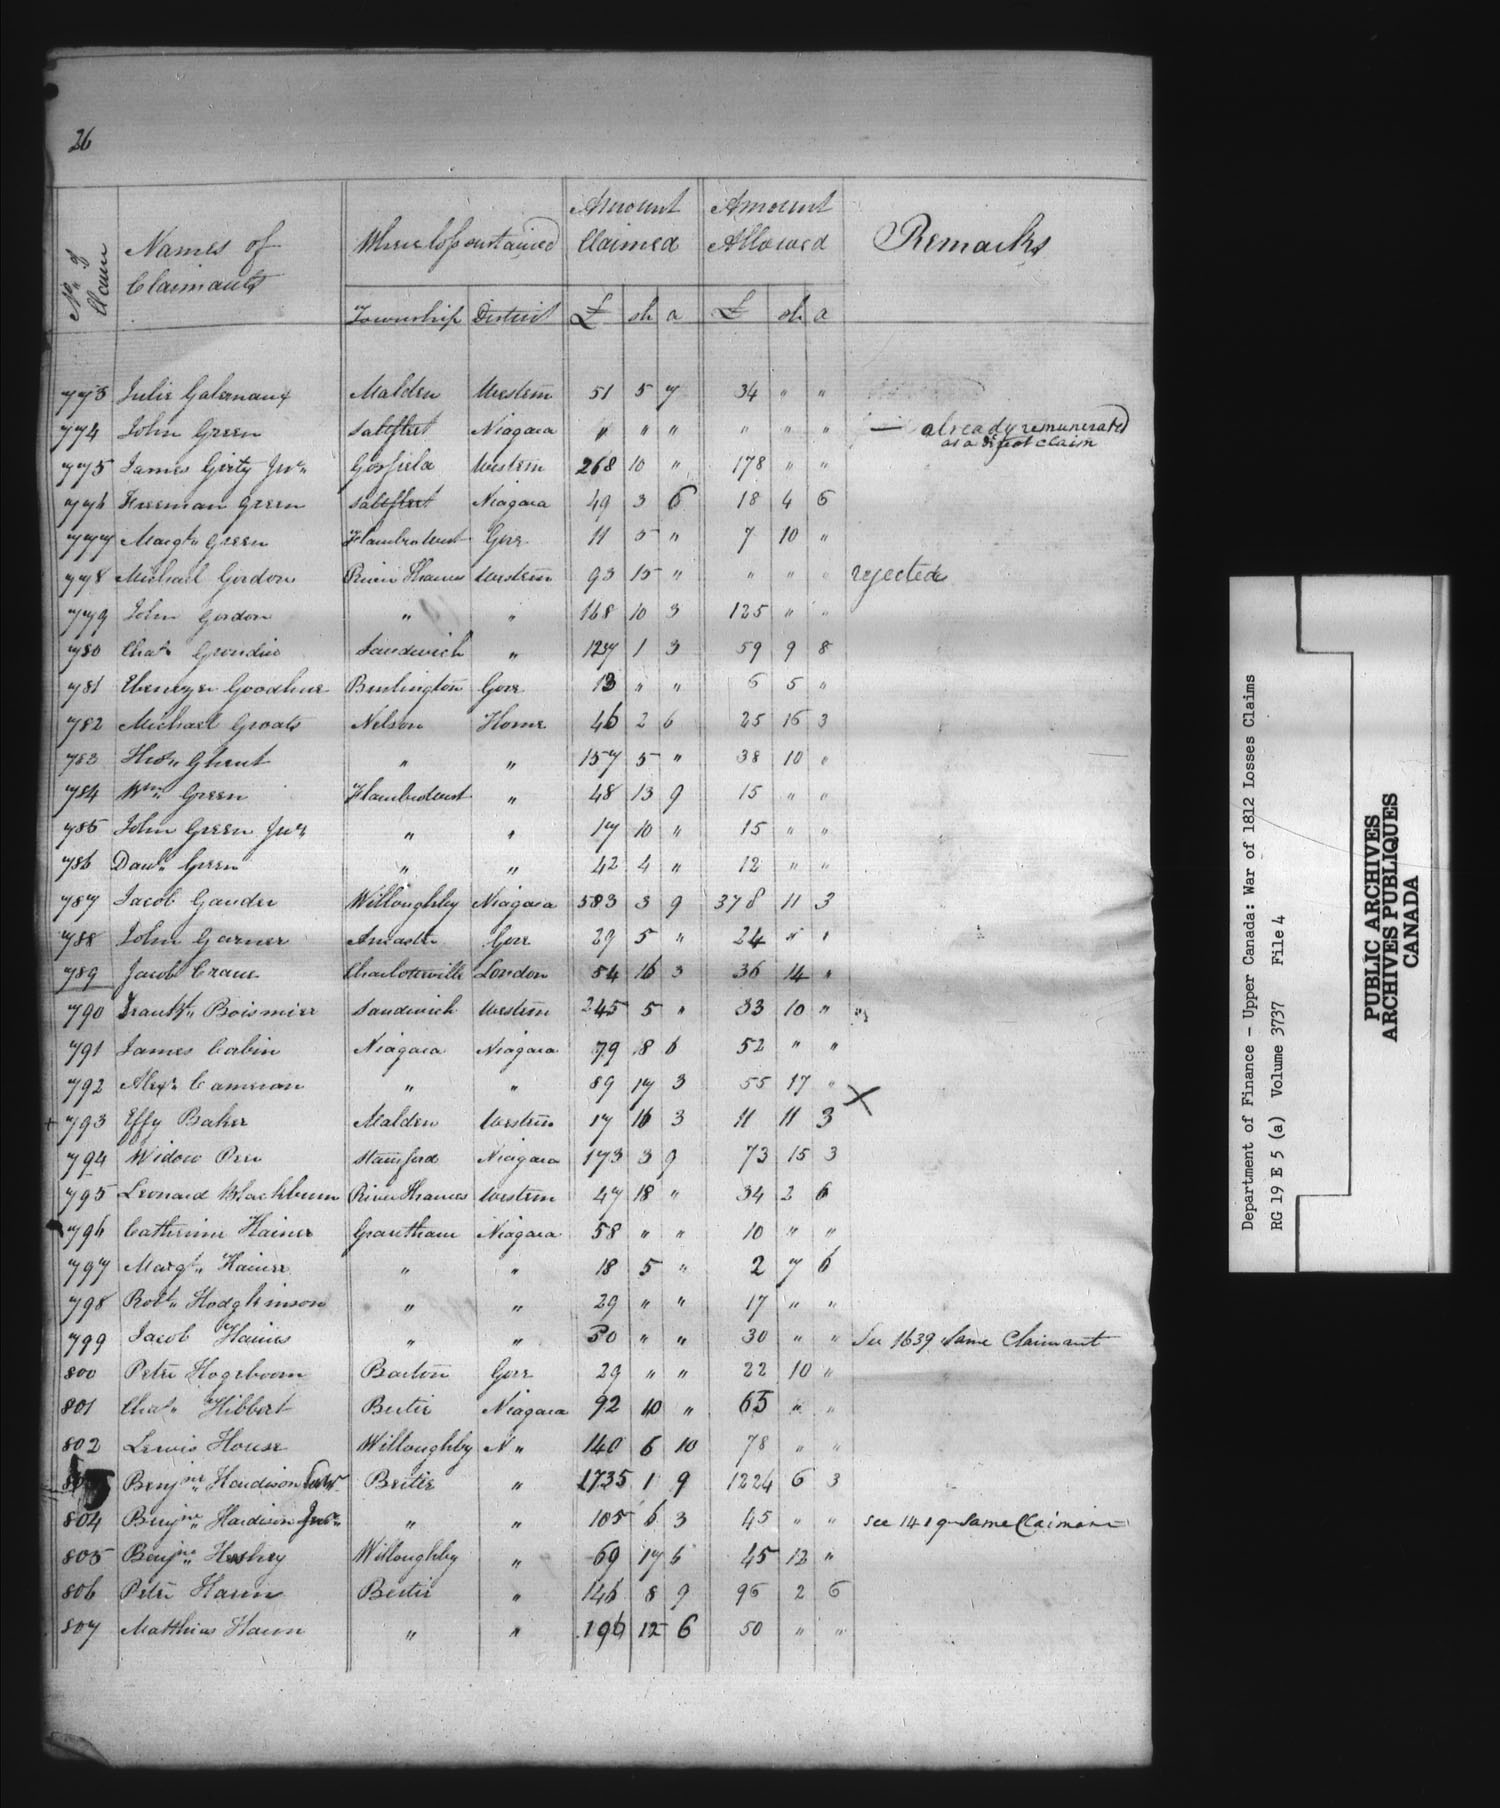 26
No. of Claim | Names of Claimants | Where loss sustained | Amount Claimed | Amount Allowed | Remarks
Township | District | £ | sh | d | £ | sh | d
773 Julie Galernaux Malden Western 51 5 7 34 " "
774 John Green Saltfleet Niagara " " " " " " — already remunerated
as a dist claim
775 James Girty Junr. Gosfield Western 268 10 " 178 " "
776 Freeman Green Saltfleet Niagara 49 3 6 18 4 6
777 Margt. Green Flambro West Gore 11 5 " 7 10 "
778 Michael Gordon River Thames Western 93 15 " " " " rejected
779 John Gordon " " 168 10 3 125 " "
780 Chas. Grondin Sandwich " 127 1 3 59 9 8
781 Ebenezer Goodhue Burlington Gore 13 " " 6 5 "
782 Michael Groats Nelson Home 46 2 6 25 16 3
783 Ghent " " 157 5 " 38 10 "
784 Wm. Green Flambro West " 48 13 9 15 " "
785 John Green Junr " " 17 10 " 15 " "
786 Danl. Green " " 42 4 " 12 " "
787 Jacob Gander Willoughby Niagara 583 3 9 378 11 3
788 John Garner Ancaster Gore 29 5 " 24 " "
789 Jacob Crane Charlotteville London 54 16 3 36 14 "
790 Boismier Sandwich Western 245 5 " 33 10 "
791 James Corbin Niagara Niagara 79 8 6 52 " "
792 Alexr. Cameron " " 89 17 3 55 17 "
+ 793 Effy Baker Malden Western 17 16 3 11 11 3 X
794 Widow Pew Stamford Niagara 173 3 9 73 15 3
795 Leonard Blackburn River Thames Western 47 18 " 34 2 6
796 Catherine Hainer Grantham Niagara 58 " " 10 " "
797 Margt. Hainer " " 18 5 " 2 7 6
798 Robt. Hodgkinson " " 29 " " 17 " "
799 Jacob Haines " " 50 " " 30 " " See 1639 same Claimant
800 Peter Hogeboom Barton Gore 29 " " 22 10 "
801 Chas. Hibbert Bertie Niagara 92 10 " 65 " "
802 Lewis House Willoughby N " 140 6 10 78 " "
Benjn. Hardison Senr. Bertie " 1735 1 9 1224 6 3
804 Benjn. Hardison Junr. " " 105 6 3 45 " " see 1419 same Claimant
805 Benjn. Hershey Willoughby " 69 17 6 45 12 "
806 Peter Haun Bertie " 146 8 9 96 2 6
807 Matthias Haun " " 196 12 6 50 " "
Department of Finance - Upper Canada: War of 1812 Losses Claims
RG 19 E 5 (a) Volume 3737 File 4
PUBLIC ARCHIVES
ARCHIVES PUBLIQUES
CANADA